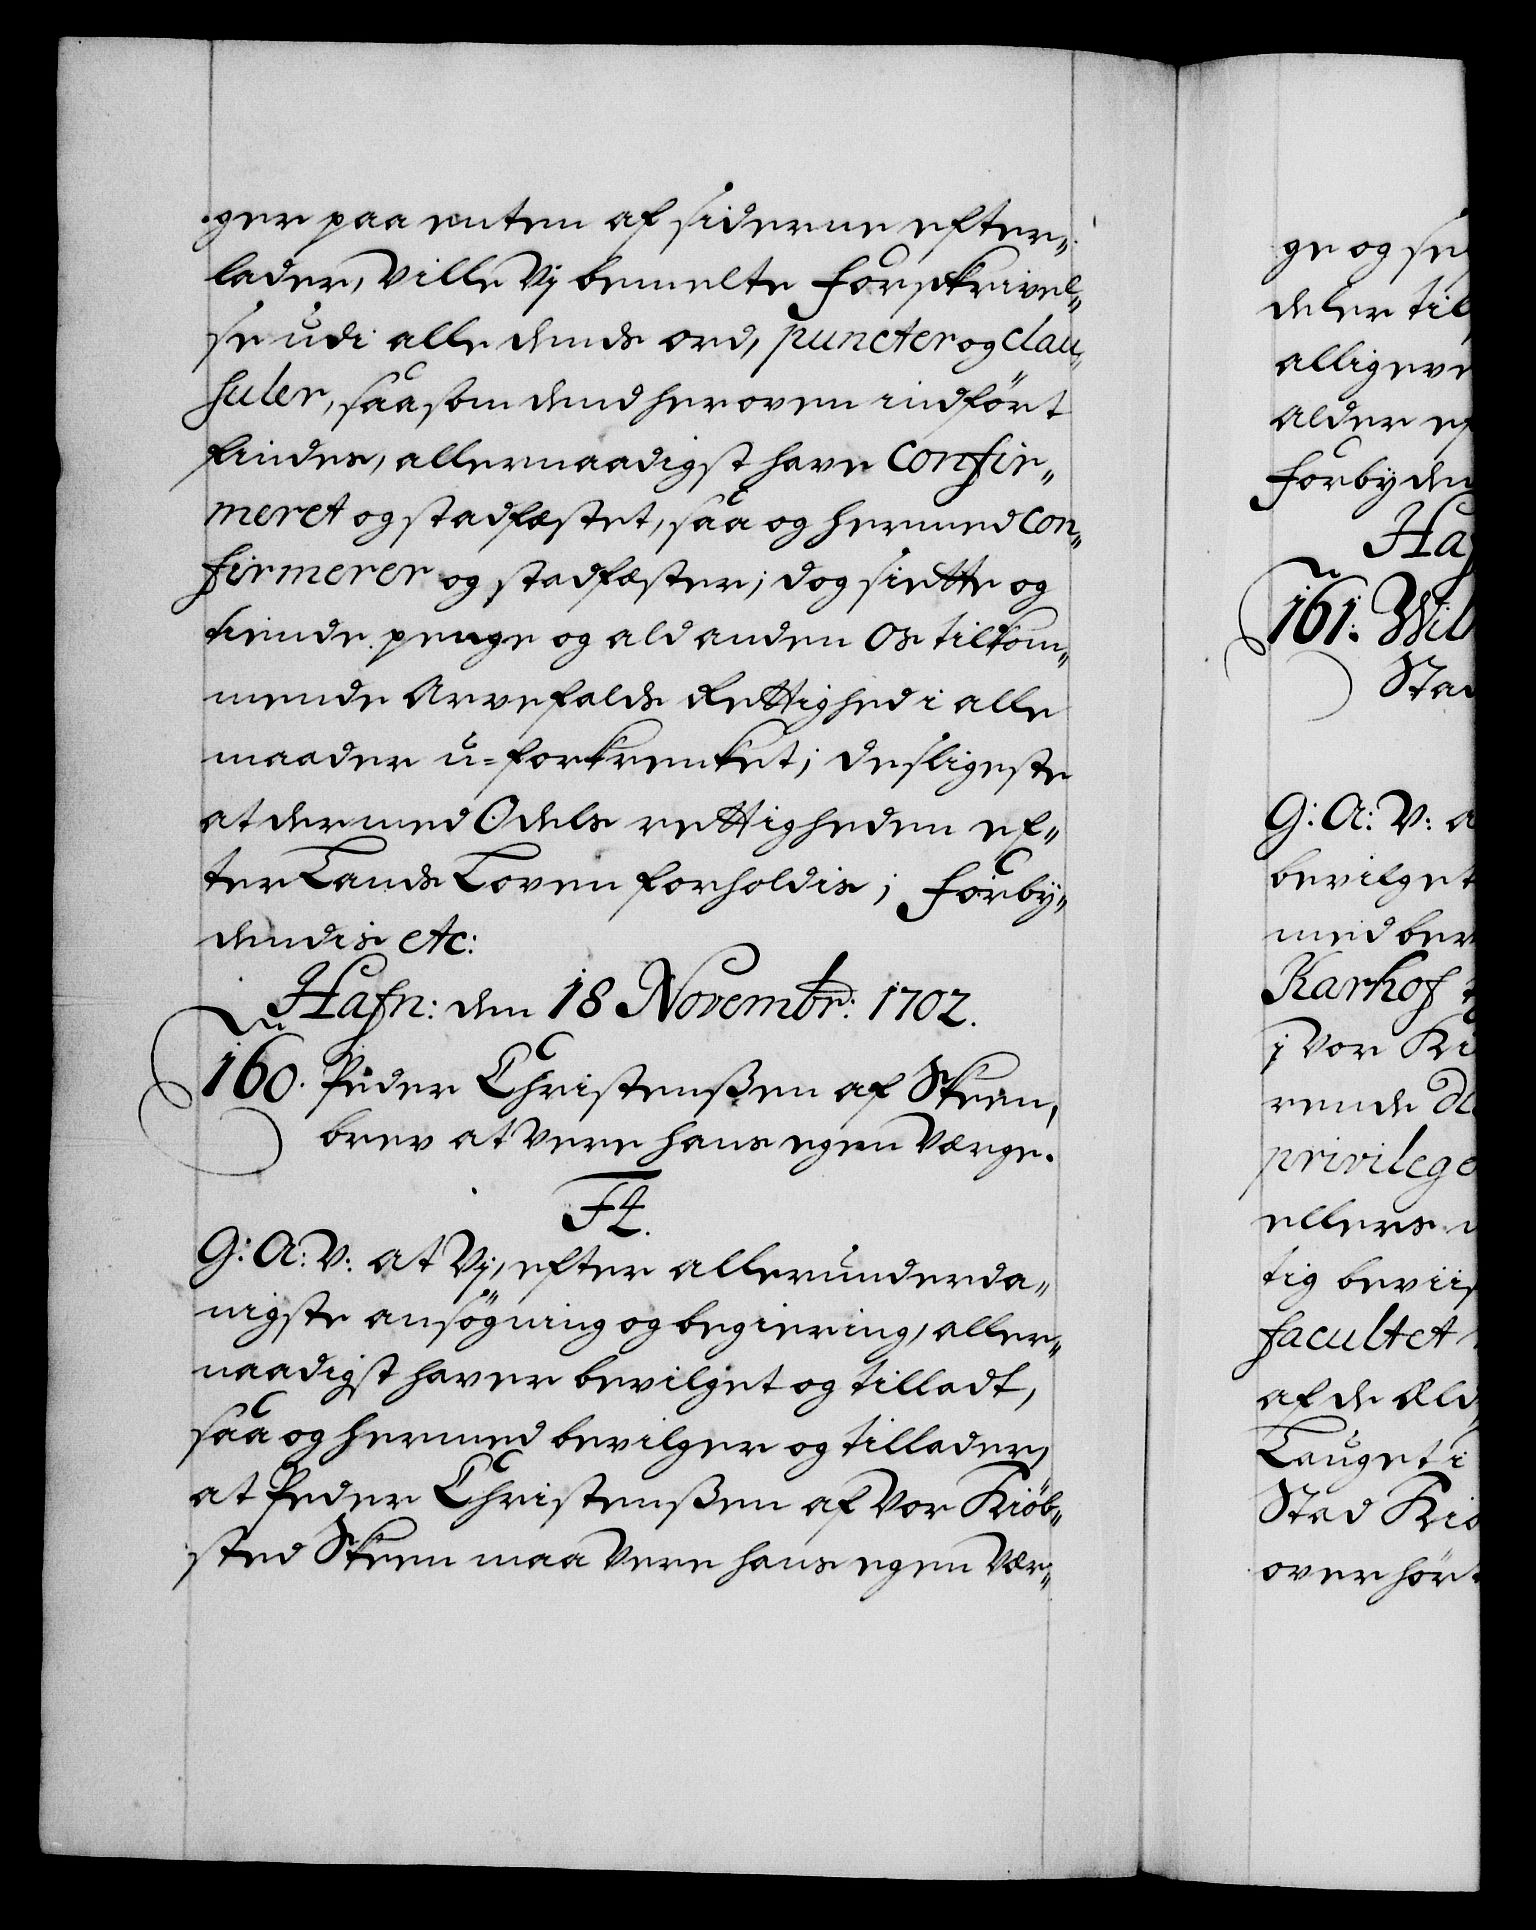 ger paa enten af siderne efter„
lader, Ville Vj bemelte forskrivel„
se udi alle dends ord, puncter og clau„
suler, saasom dend her oven indført
findes, allernaadigst have confir„
meret og stadfæstet, saa og hermed con„
firmerer og stadfæster; dog siette og
tiende penge og ald anden Os tilkom„
mende Arvefalds Rettighed i alle
maader u=forkrenket; desligeste
at der med Odels rettigheden ef„
ter Lands Loven forholdis; forby„
dendis etc:
Hafn: den 18 Novembr: 1702.
160. Peder Christenßen af Skeen,
brev at Vere hans egen Værge.
F4.
G: A: V: at Vj, efter allerunderda„
nigste ansøgning og begiering, aller„
naadigst haver bevilget og tilladt,
saa og hermed bevilger og tillader,
at Peder Christenßen af Vor Kiøb„
sted Skeen maa Vere hans egen Vær„
ge og
deler til
alligeve
Alder ef
forbyden
Ha
161.
Stad
G: A: V: a
bevilget
med ber
Karhof
i Vor Ki
rende
privilege
ellers
tig beviis
facultet
af de Æld
Lauget i
Sted Kiø
overhørt